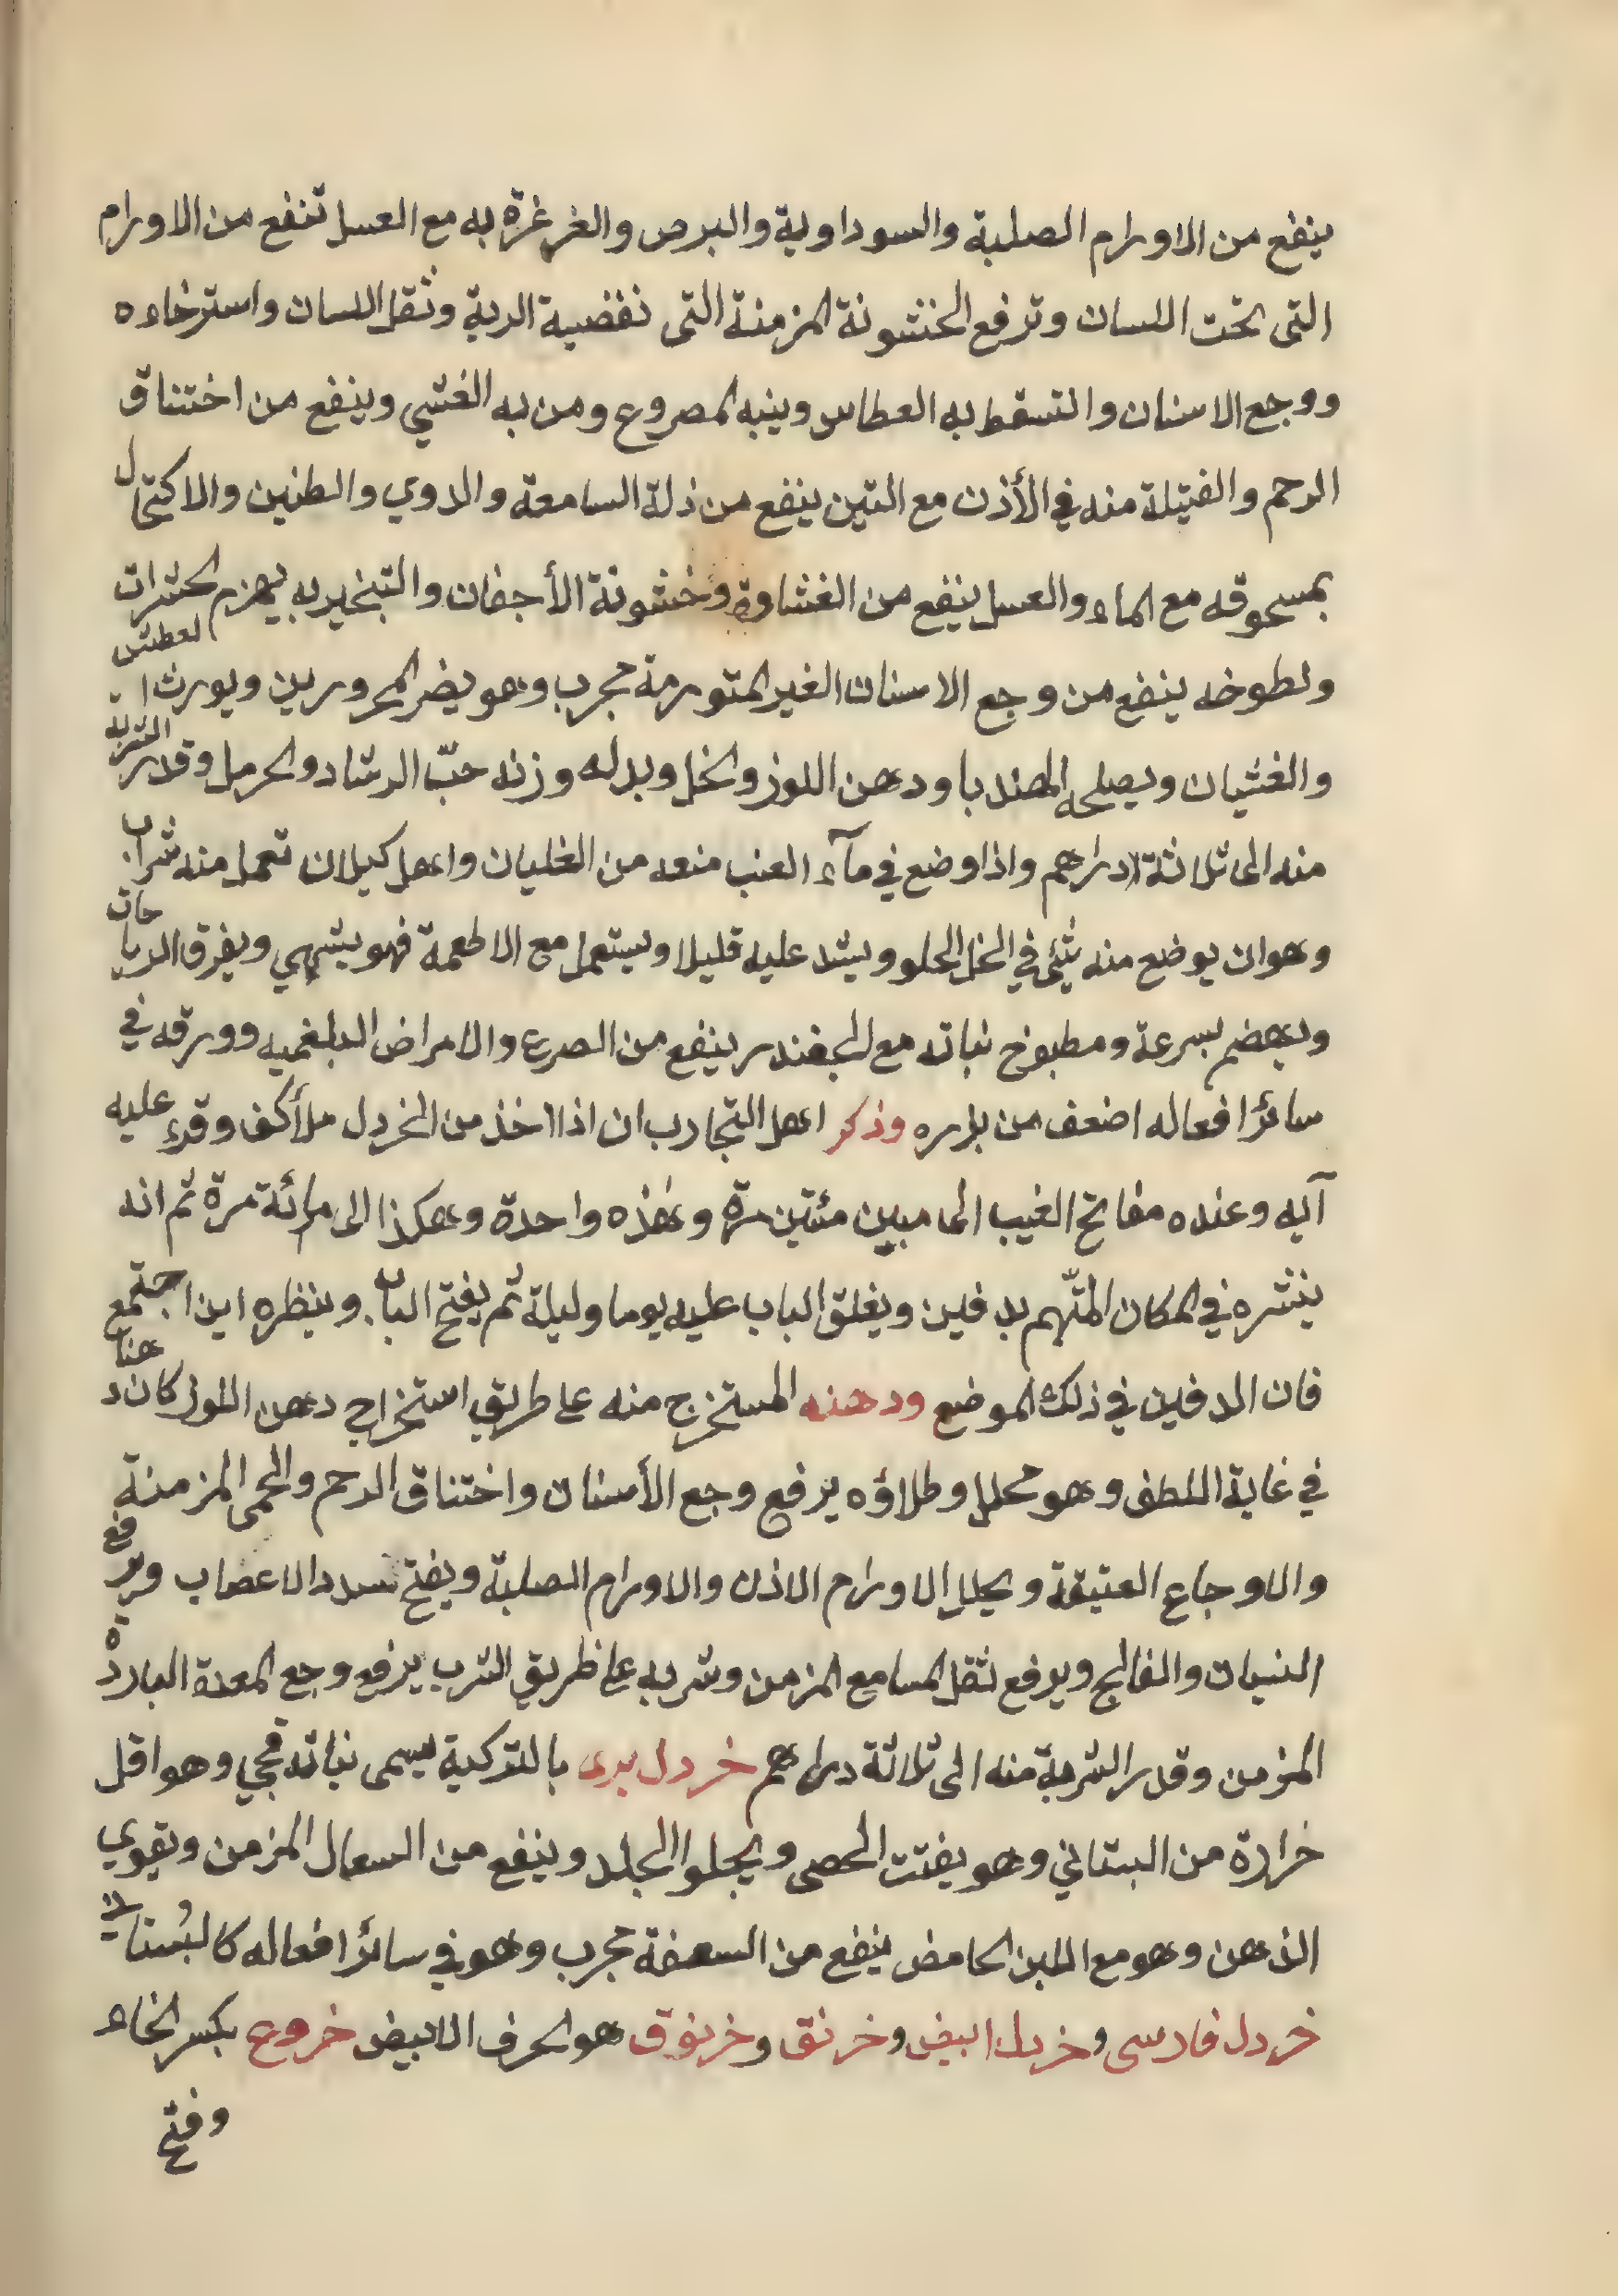 ينفع من الاورام الصلبة والسوداوية والبرص والغرغرة به مع العسل تنفع من الاورام
التي تحت اللسان وترفع الخشونة المزمنة التي نقضبية الرية وثقل اللسان واسترخاءه
ووجع الاسنان والتسقط به العطاس وينبه المصروع ومن به الغشي وينفع من اختناق
الرحم والفتيلة منه في الأذن مع التين ينفع من ذلة السامعة والدوي والطنين والاكتحال
بمسحوقه مع الماء والعسل ينفع من الغشاوة وخشونة الأجفان والتبخير به يهزم الحشرات
ولطوخه ينفع من وجع الاسنان الغير المتورمة مجرب وهو يضر المحرورين ويورث العطش
والغثيان ويصلحه الهندبا ودهن اللوز والخل وبدله وزنه حبّ الرشاد والحرمل وقدر الشربة
منه الى ثلاثة دراهم واذا وضع في مآء العنب منعه من الغليان واهل كيلان تعمل منه شراب
وهو ان يوضع منه شئ في الخل الحلو ويشد عليه قليلا ويستعمل مع الاطعمة فهو يشهي ويفرق الرياحات
ويهضم بسرعة ومطبوخ نباته مع الجغندر ينفع من الصرع والامراض البلغميه وورقه في
سائر افعاله اضعف من بزره وذكر اهل التجارب ان اذا اخذ من الخردل ملأ كف وقرء عليه
آيه وعنده مفاتح الغيب الى مبين مئتين مرة وهذه واحدة وهكذا الى مائة مرة ثم انه
ينثره في المكان المتّهم بدفين ويغلق الباب عليه يوما وليلة ثم يفتح الباب وينظره اين اجتمع
فان الدفين في ذلك الموضع ودهنه المستخرج منه على طريق استخراج دهن اللوز كان دهنا
في غاية اللطف وهو محلل وطلاؤه يرفع وجع الأسنان واختناق الرحم والحمى المزمنة
والاوجاع العتيقة ويحلل الاورام الاذن والاورام الصلبة ويفتح سدد الاعصاب ويرفع
النسيان والفالج ويرفع ثقل المسامع المزمن وشربه على طريق الشرب يرفع وجع المعدة الباردة
المزمن وقدر الشربة منه الى ثلاثة دراهم خردل برى بالتركية يسمى نباته قجي وهو اقل
حرارة من البستاني وهو يفتت الحصى ويجلوا الجلد وينفع من السعال المزمن ويقوي
الذهن وهو مع اللبن الحامض ينفع من السعفة مجرب وهو في سائر افعاله كالبُستاني
خردل فارسى وخردل ابيض وخرنق وخرنوق هو الحرف الابيض خروع بكسر الخاء
وفتح